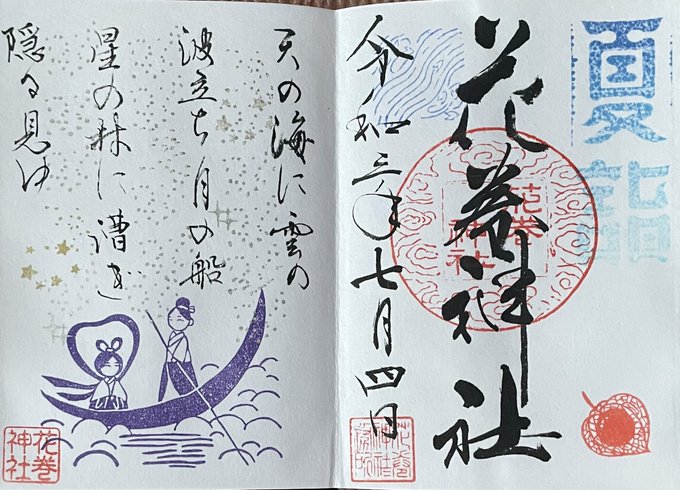 夏詣
花巻神社
花巻
神社
令和三年七月四日
花巻
神社
天の海に雲の
波立ち月の船
星の林に漕ぎ
隠る見ゆ
花巻
神社